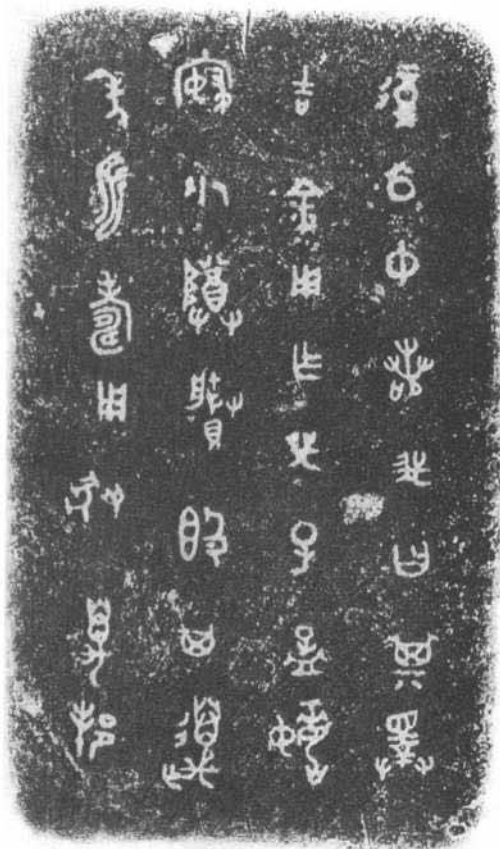 復公中若我曰其擇
吉金用乍我子孟媿
寑小尊媵𣪘其萬
年永壽用